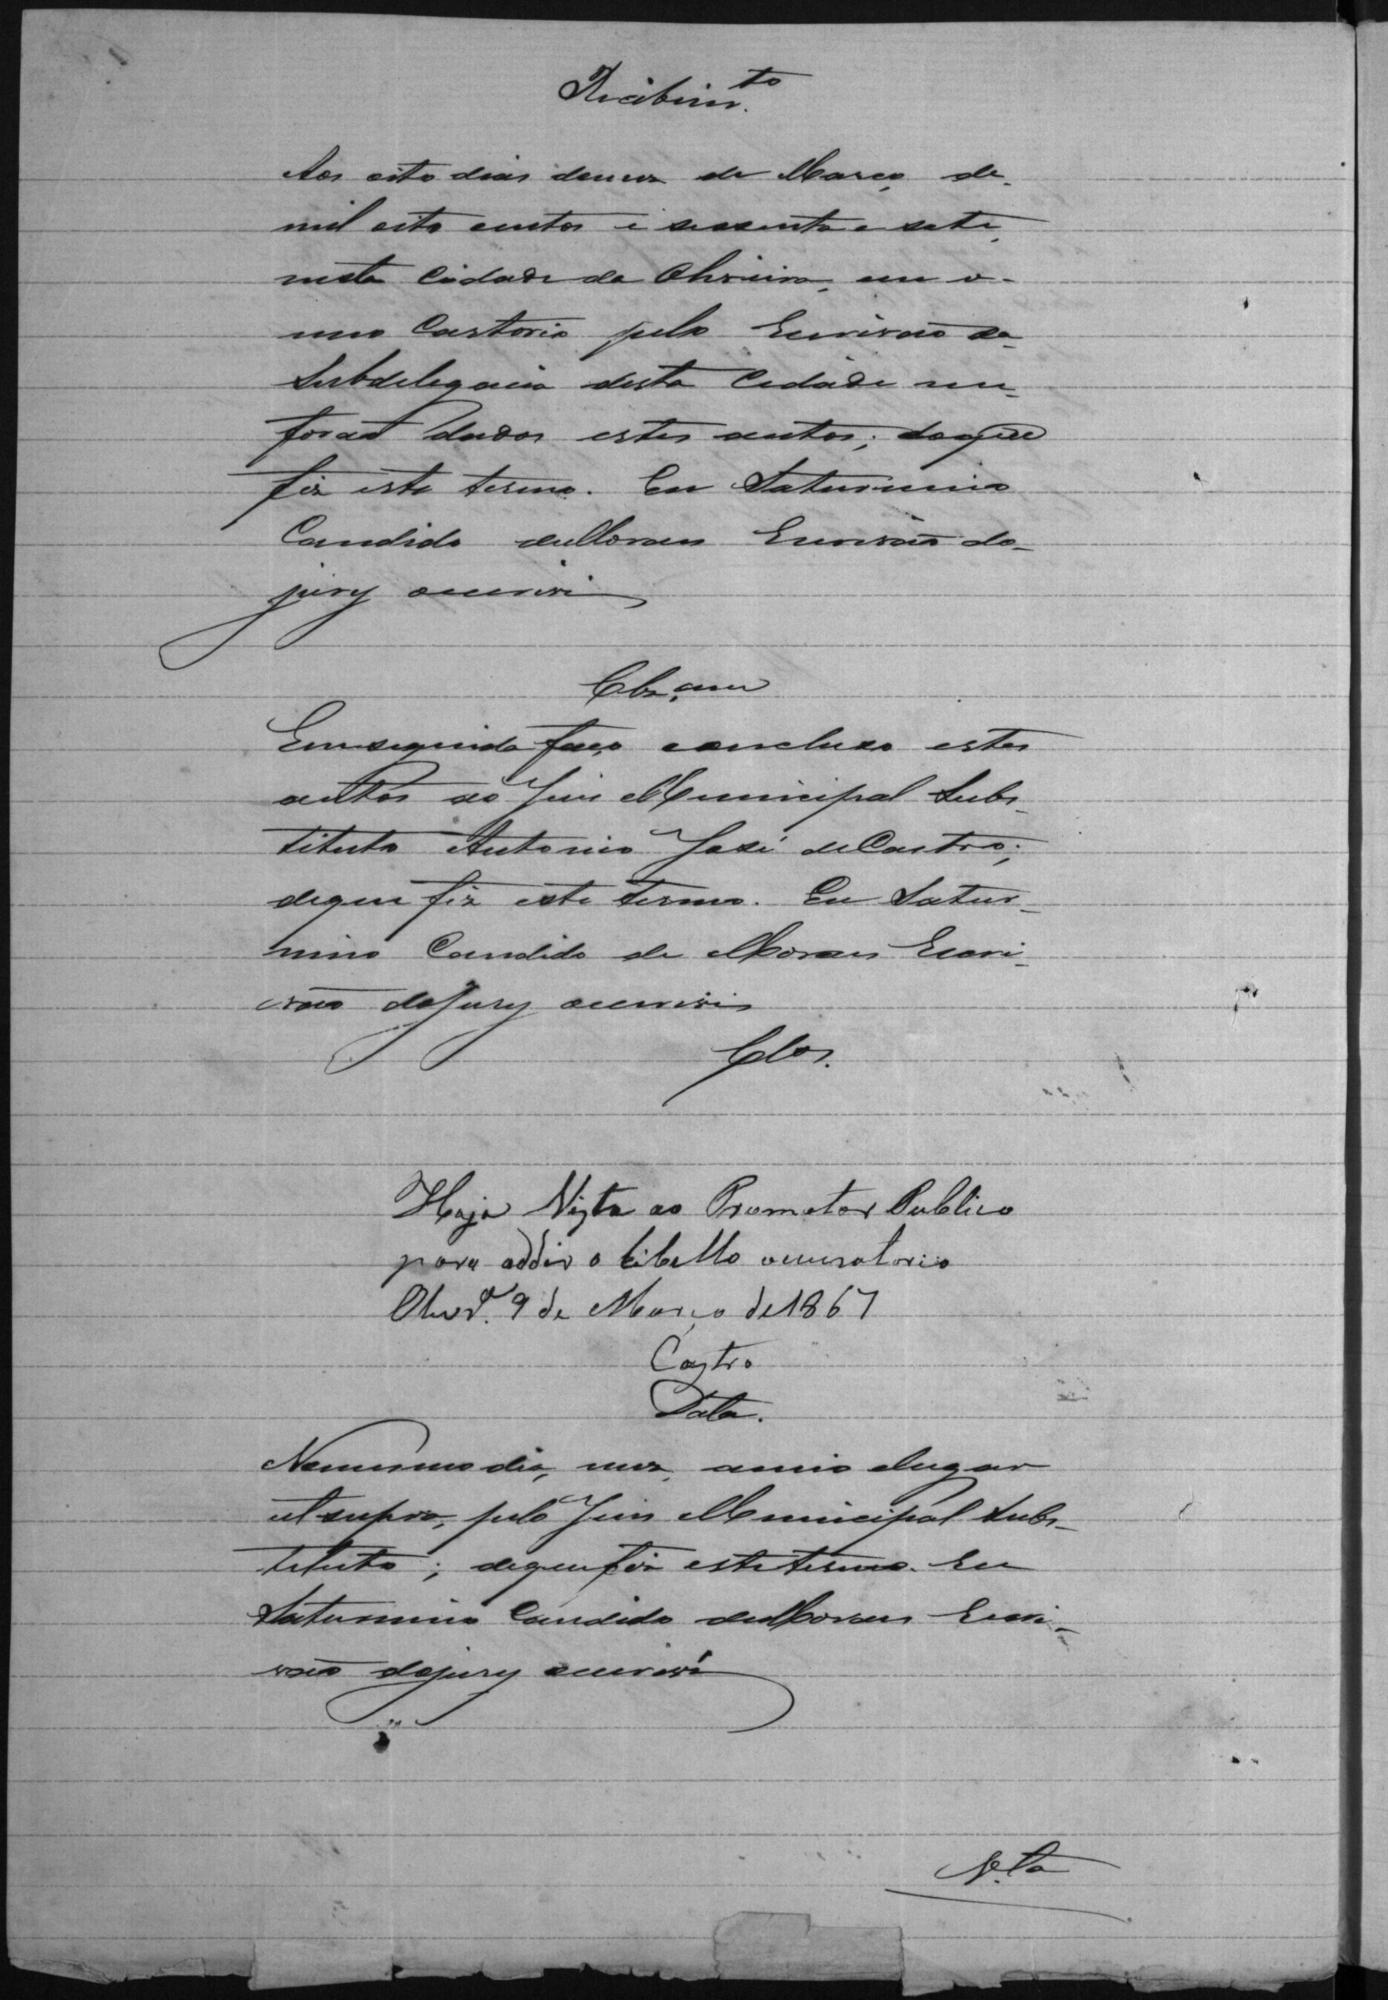 Recebim.to
Aos oito dias do mez de Março de
mil oito centos e sessenta e sete
nesta Cidade de Oliveira, em o
meo Cartorio pelo Escrivão da
Subdelegacia desta Cidade me
forão dados estes autos; do que
fiz este termo. Eu Saturnino
Candido de Moraes Escrivão do
jury escrevi
Clz.am
Em seguida faço concluso estes
autos ao Juiz Municipal Subs-
tituto Antonio José de Castro;
de que fiz este termo. Eu Satur-
nino Candido de Moraes Escri-
vão do Jury escrevi
Clos.
Haja Vista ao Promotor Publico
para addir o libello accusatorio
Olivr.a 9 de Março de 1867
Castro
Data.
No mesmo dia, mez, anno e lugar
ut supra, pelo Juiz Municipal Subs-
tituto; de que fiz este termo. Eu
Saturnino Candido de Moraes Escri-
vão do jury escrevi
V.ta